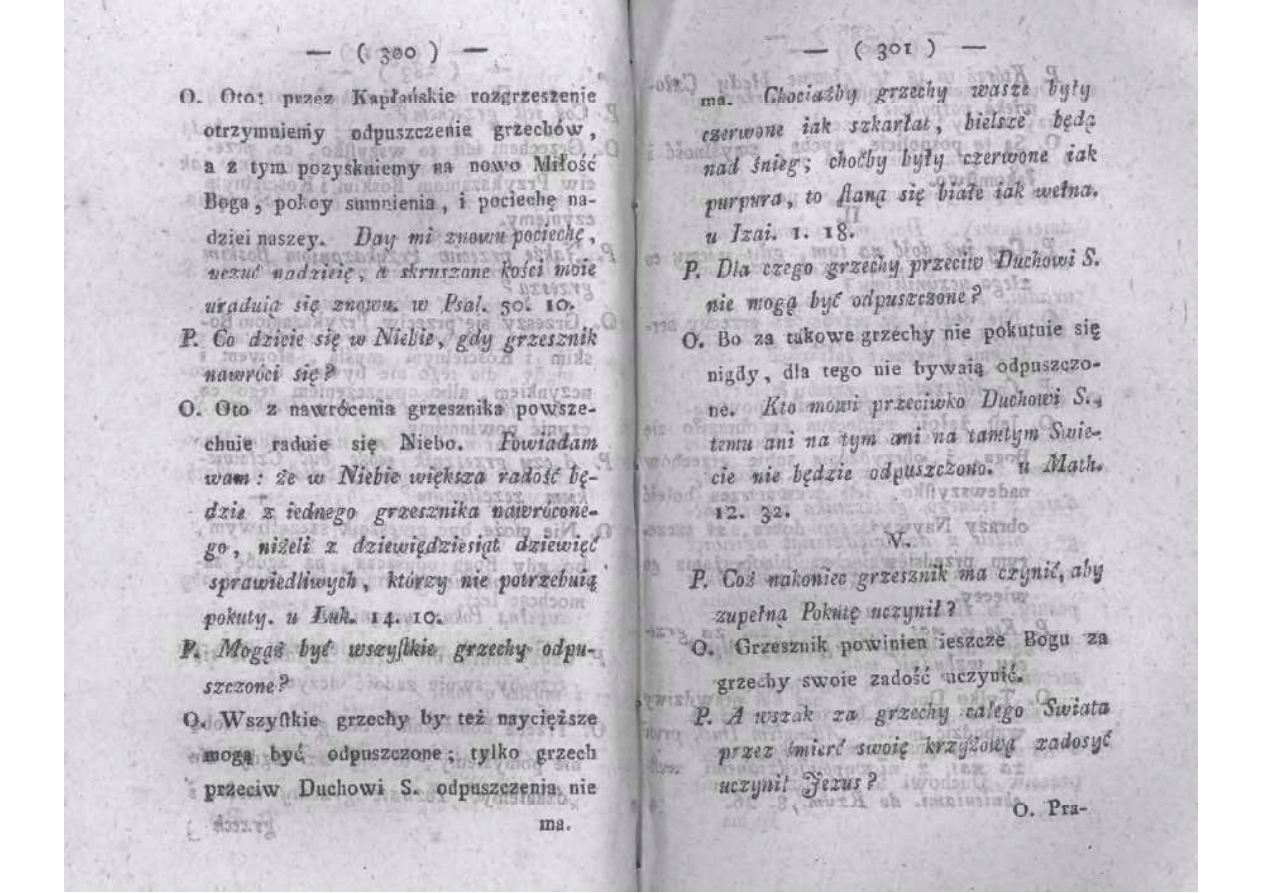 — ( 300 ) —
O. Oto: przez Kapłańskie rozgrzeszenie
otrzymuiemy odpuszczenie grzechów,
a z tym pozyskniemy na nowo Miłość
Boga, pokoy sumnienia, i pociechę na-
dziei naszey. Day mi znowu pociechę,
uczuć nadzieię, a skruszone kości moie
uraduią się znowu. w Psal. 50. 10.
P. Co dzieie się w Niebie, gdy grzesznik
nawróci się?
O. Oto z nawrócenia grzesznika powsze-
chnie raduie się Niebo. Powiadam
wam: że w Niebie większa radość bę-
dzie z iednego grzesznika nawrócone-
go, niżeli z dziewiędziesiąt dziewięć
sprawiedliwych, którzy nie potrzebuią
pokuty. u Łuk. 14. 10.
P. Mogąż być wszyſtkie grzechy odpu-
szczone?
O. Wszyſtkie grzechy by też naycięższe
mogą być odpuszczone; tylko grzech
przeciw Duchowi S. odpuszczenia nie
ma.
— ( 301 ) —
ma. Chociażby grzechy wasze były
czerwone iak szkarłat, bielsze będą
nad śnieg; choćby były czerwone iak
purpura, to ſtaną się białe iak wełna.
u Izai. 1. 18.
P. Dla czego grzechy przeciw Duchowi S.
nie mogą być odpuszczone?
O. Bo za takowe grzechy nie pokutuie się
nigdy, dla tego nie bywaią odpuszczo-
ne. Kto mowi przeciwko Duchowi S.,
temu ani na tym ani na tamtym Swie-
cie nie będzie odpuszczono. u Math.
12. 32.
V.
P. Coż nakoniec grzesznik ma czynić, aby
zupełną Pokutę uczynił?
O. Grzesznik powinien ieszcze Bogu za
grzechy swoie zadość uczynić.
P. A wszak za grzechy całego Swiata
przez śmierć swoię krzyżową zadosyć
uczynił Jezus?
O. Pra-